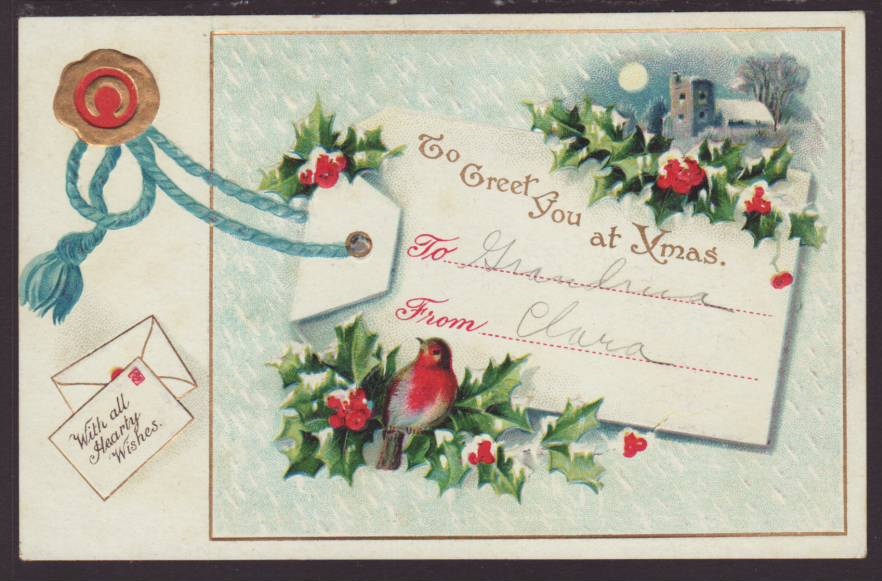 To Greet You at Xmas.
To Grandma
From Clara
With all
Hearty
Wishes.